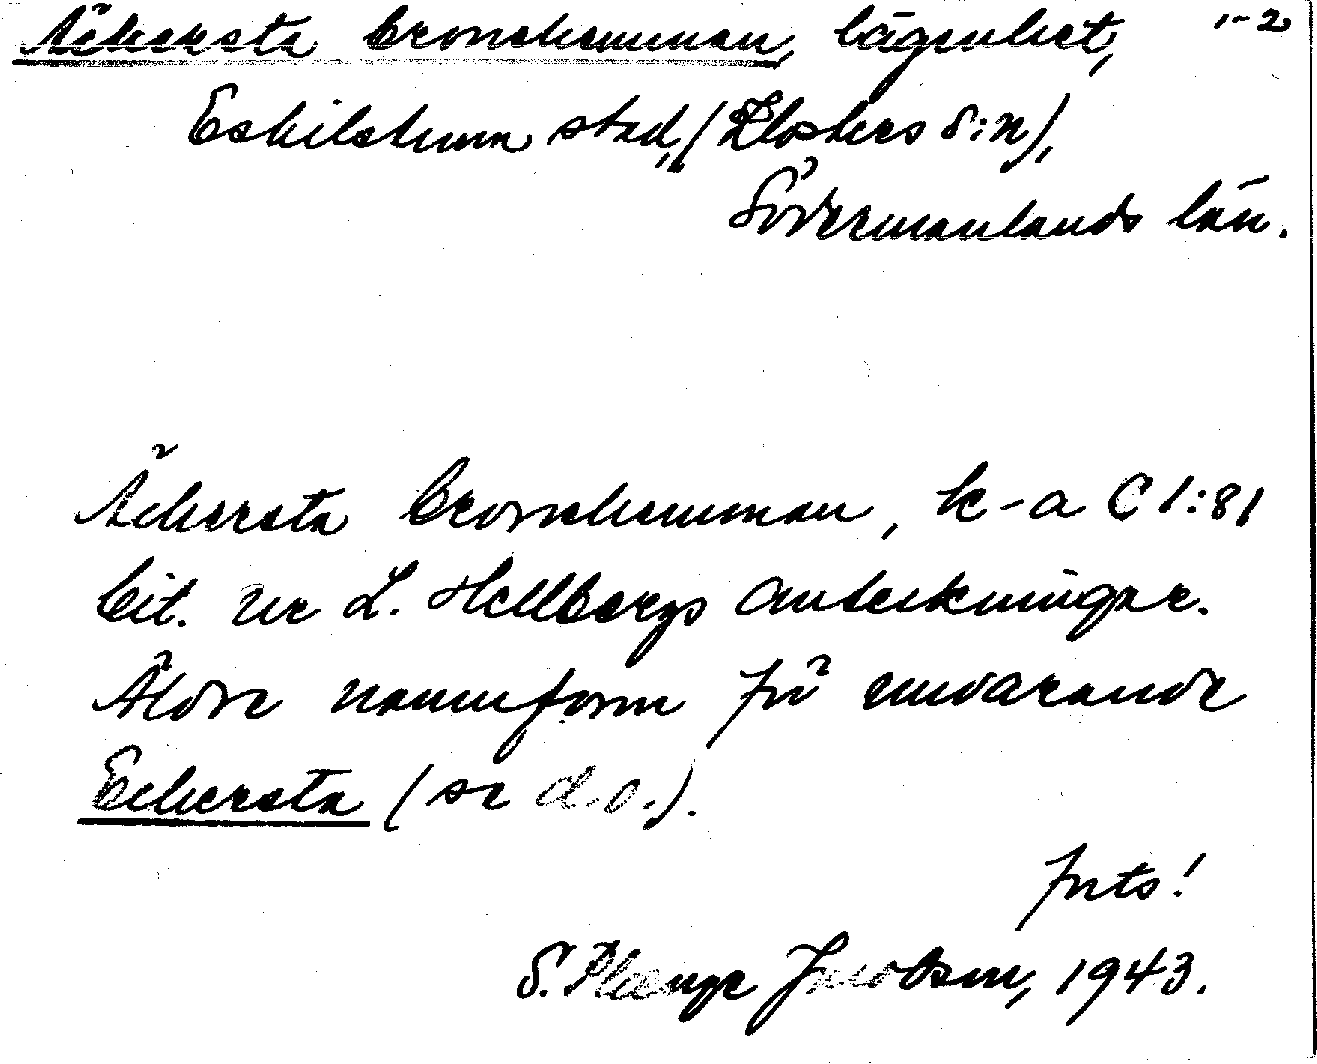 Äckersta Cronohemman, lägenhet, 1-2
Eskilstuna stad, (Klosters s:n),
Södermanlands län.
Äckersta Cronohemman, k-a C1:81
Cit. ur L. Hellbergs anteckningar.
Äldre namnform på nuvarande
Eckersta (se d.o.).
forts!
S. Plænge Jacobson, 1943.